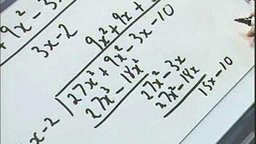 +9x²-3
3x-2
9x²+9x+
x-2 27x³+9x²-3x-10
27x³-18x²
27x²-3x
27x²-18x
15x-10